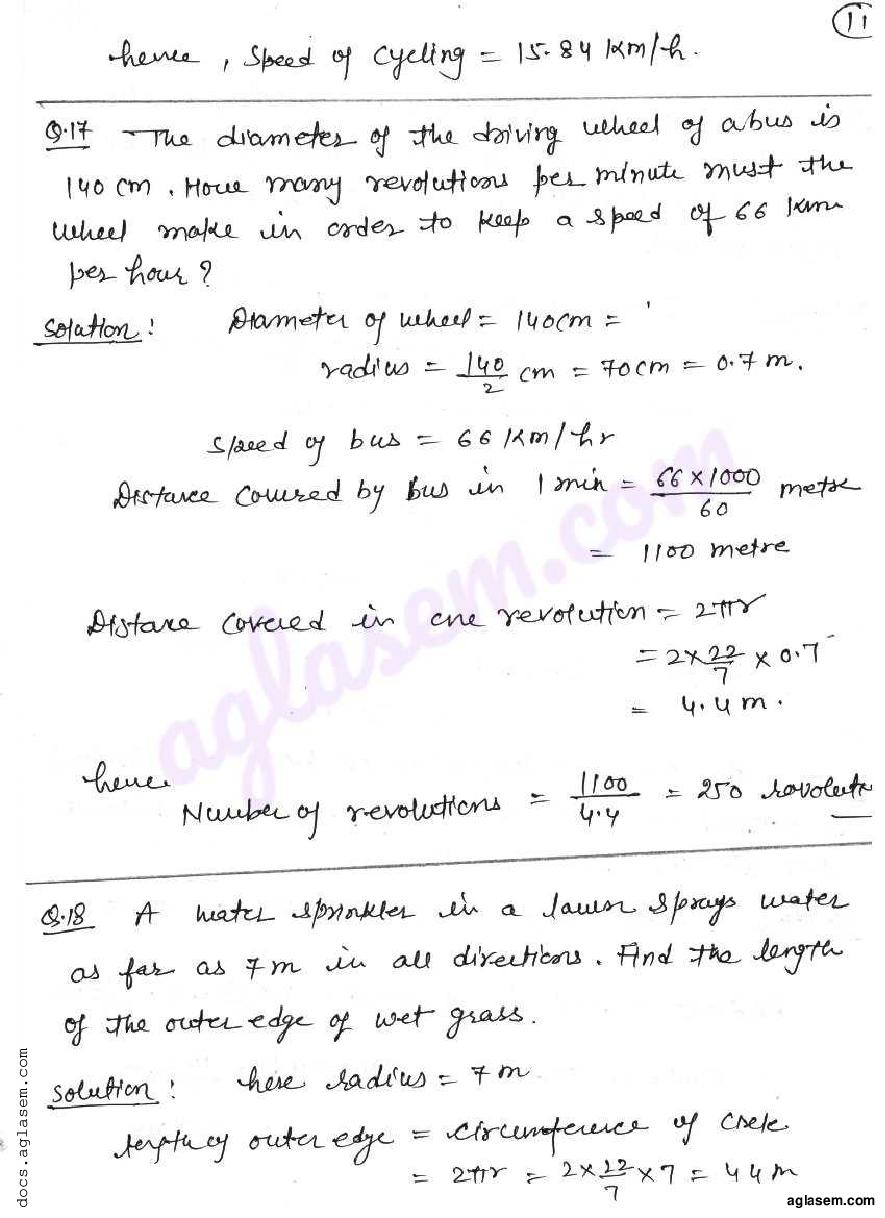 11
hence, speed of cycling = 15.84 km/h.
Q.17 The diameter of the driving wheel of a bus is
140 cm. How many revolutions per minute must the
wheel make in order to keep a speed of 66 km
per hour?
Solution: Diameter of wheel = 140cm =
radius = 140/2 cm = 70cm = 0.7 m.
Speed of bus = 66 km/hr
Distance covered by bus in 1 min = 66 × 1000/60 metre
= 1100 metre
Distance covered in one revolution = 2πr
= 2 × 22/7 × 0.7
= 4.4 m.
hence
Number of revolutions = 1100/4.4 = 250 revolutn
Q.18 A water sprinkler in a lawn sprays water
as far as 7m in all directions. Find the length
of the outer edge of wet grass.
Solution: here radius = 7m
length of outer edge = circumference of circle
= 2πr = 2 × 22/7 × 7 = 44 m
aglasem.com
docs.aglasem.com
aglasem.com